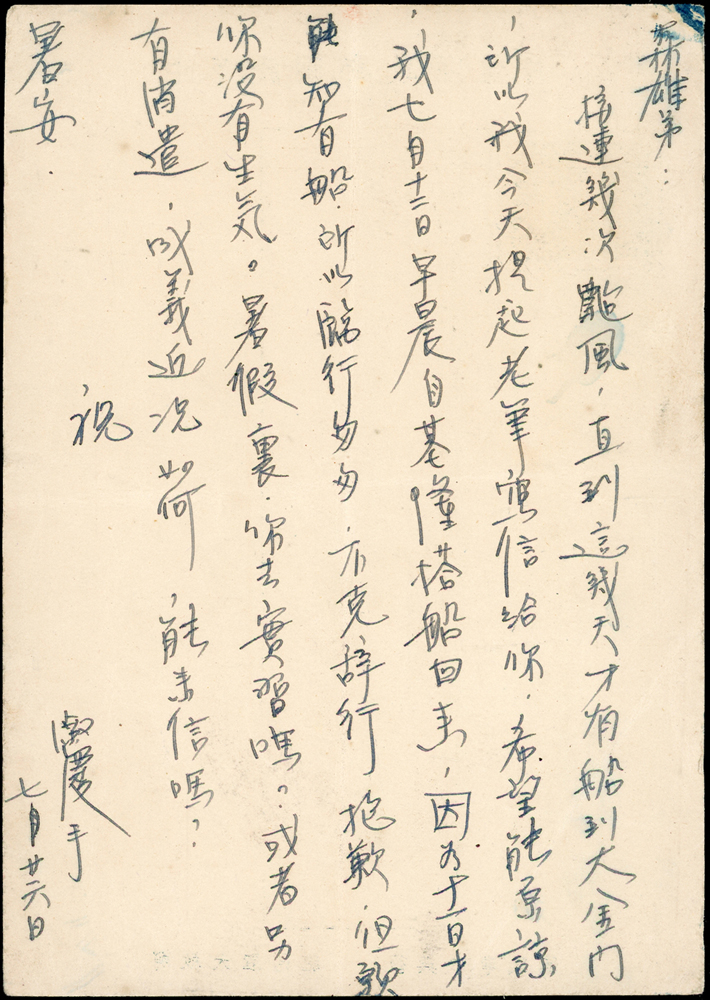 森雄弟：
接連幾次颱風，直到這幾天才有船到大金門
，所以我今天提起老筆寫信給你，希望能原諒
，我七月十二日早晨自基隆搭船回來，因为十一日才
知有船，所以臨行匆匆，不克辞行抱歉，但願
你沒有生気。暑假裏，你去實習嗎？或者另
有消遣，成義近况如何，能來信嗎？
祝
暑安．
慶手
七月廿六日